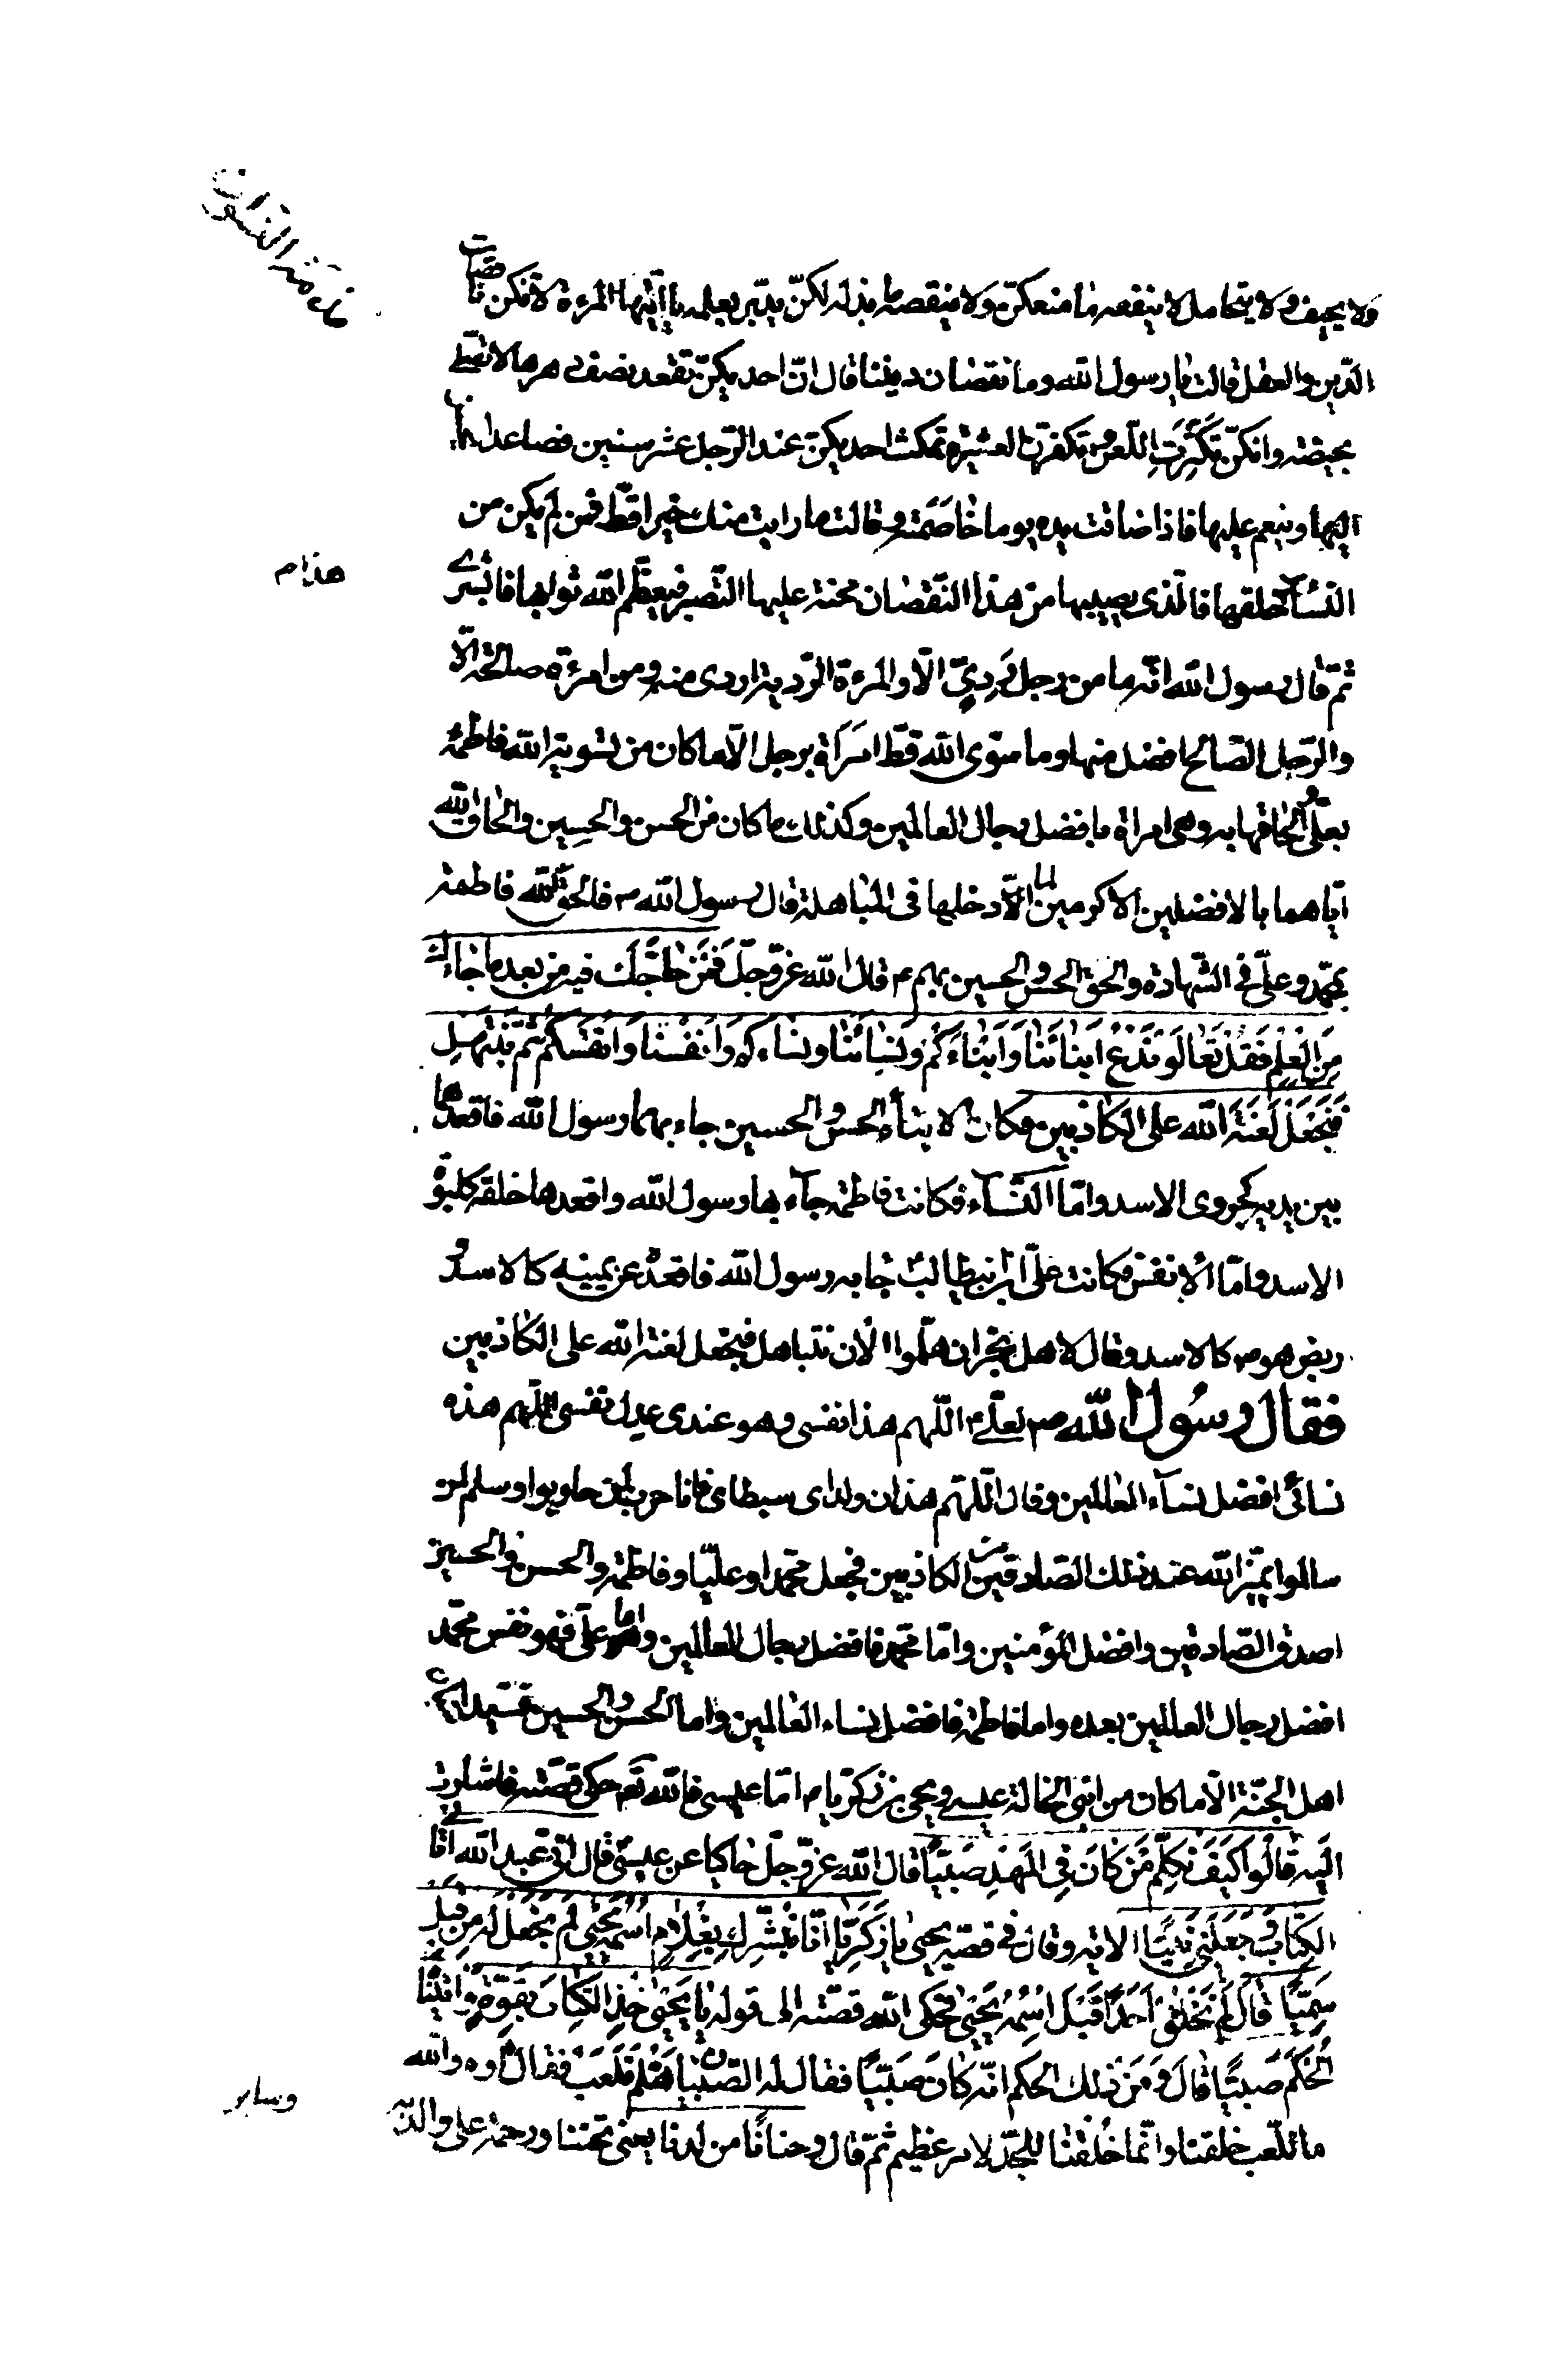 في مذمة النسوان
ولا يحيف ولا يتحامل لا ينفعه ما منعكن ولا ينقصه ما بذله لكن يدبر بعلمه يا ايتها المرءة لانكن ناقصات
الدين والعقل قالت يا رسول الله وما نقصان ديننا قال ان احديكن تقعد نصف دهرها لا تصلي
بحيضه وانكن تكثرن اللعن وتكفرن العشيرة تمكث احديكن عند الرجل عشر سنين فصاعدا يحسن
اليها وينعم عليها فاذا ضاقت يده يوما خاصمته وقالت ما رايت منك خيرا قط فمن لم يكن من
النساء خلقها فالذي يصيبها من هذا النقصان محنة عليها لتصبر فيعظم الله ثوابها فابشري
هذا م
ثم قال رسول الله انه ما من رجل رديّ الا والمرءة الردية اردى منه ومن امرءة صالحة الا
والرجل الصالح افضل منها وما سوى الله قط امرأة برجل الا ما كان من تسوية الله فاطمة
بعلي والحاقها به وهي امراة بافضل رجال العالمين وكذلك ما كان من الحسن والحسين والحاق الله
اياهما بالافضلين الاكرمين لما ادخلها في المباهلة قال رسول الله ص فالحق الله فاطمة
بمحمد وعلي في الشهادة والحق الحسن والحسين بهم ع قال الله عز وجل فَمَنْ حاجَّكَ فيه من بعد ما جاءك
مِنَ العِلْمِ فَقُلْ تَعَالَوْ نَدْعُ اَبنائَنا وَاَبْناءَكُم وَنِسائَنا ونساءكم وَاَنفُسَنا وَاَنفُسَكُم ثُمَّ نَبْتَهِلْ
فَنَجْعَلْ لَعْنَةَ الله على الكاذبين فكان الابناء الحسن والحسين جاء بهما رسول الله فاقعدهما
بين يديه كجروى الاسد واما النساء فكانت فاطمة جاء بها رسول الله واقعدها خلفه كلبوة
الاسد واما الانفس فكانت علي ابن ابيطالب جا به رسول الله فاقعده عن يمينه كالاسد و
ربض هو ص كالاسد وقال لاهل نجران هلموا الان نتباهل فنجعل لعنة الله على الكاذبين
فقال رسول الله ص لعلي ع اللهم هذا نفسي وهو عندي عدل نفسي اللهم هذه
نسائي افضل نساء العالمين وقال اللهم هذان ولداى سبطاى فانا حرب لمن حاربوا وسلم لمن
سالموا يميز الله عند ذلك الصادقين من الكاذبين فجعل محمدا وعليا وفاطمة والحسن والحسين
اصدق الصادقين وافضل المؤمنين واما محمد فافضل رجال العالمين واما علي فهو نفس محمد
افضل رجال العالمين بعده واما فاطمة فافضل نساء العالمين واما الحسن والحسين فسيدا شباب
اهل الجنة الا ما كان من ابني الخالة عيسى ويحيى بن زكريا ع اما عيسى فالله تعم حكى قصته فاشارت
اليه قالُوا كَيْفَ نُكَلِّم مَنْ كانَ فِى المَهْدِ صَبِيّاً قال الله عز وجل حاكيا عن عيسى قال اني عبد الله اتاني
الكتابَ وجَعَلَني نَبِيّاً الاية وقال في قصة يحيى يا زَكَرِيّا اِنّا نُبَشِّرُكَ بِغُلامٍ اسْمُهُ يَحْيى لَم نَجْعَل لَه مِن قَبلُ
سَمِيّاً قالَ لم نخلق اَحَداً قَبْلَه اسمه يَحيى فحكى الله قصته الى قوله يا يَحْيى خُذِ الكِتابَ بِقوّةٍ واتيناه
الحُكْمَ صَبِيّاً قالَ وَمِن ذلك الحكم انه كانَ صَبيّاً فقال له الصبيان هَلُمَّ نَلْعَبْ فقال اوه والله
ما للعب خلقنا وانما خُلِقْنا للجدّ لامر عظيم ثم قال وحناناً من لدنا يعنى تحننا ورحمة على والديه
وساير